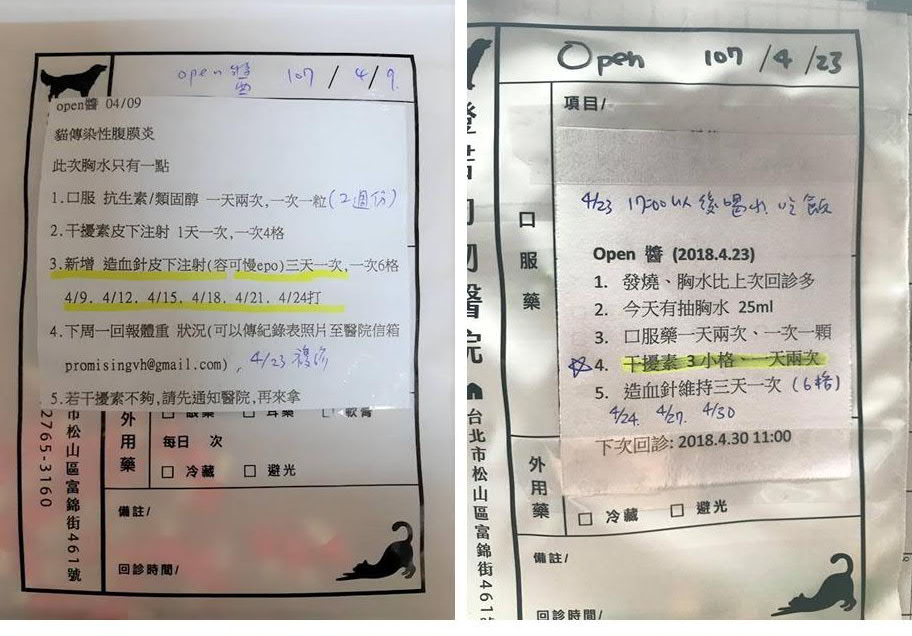 open醬 107 / 4 / 9.
open醬 04/09
貓傳染性腹膜炎
此次胸水只有一點
1.口服 抗生素/類固醇 一天兩次,一次一粒(2週份)
2.干擾素皮下注射 1天一次,一次4格
3.新增 造血針皮下注射(容可慢epo)三天一次,一次6格
4/9. 4/12. 4/15. 4/18. 4/21. 4/24打
4.下周一回報體重 狀況(可以傳紀錄表照片至醫院信箱
promisingvh@gmail.com) , 4/23 複診
5.若干擾素不夠,請先通知醫院,再來拿
外用藥
眼藥 耳藥 軟膏
每日 次
□ 冷藏 □ 避光
備註/
回診時間/
市松山區富錦街461號
2765-3160
Open 107 / 4 / 23
項目/
口服藥
4/23 17:00以後喝水.吃飯
Open 醬 (2018.4.23)
1. 發燒、胸水比上次回診多
2. 今天有抽胸水 25ml
3. 口服藥一天兩次、一次一顆
☆4. 干擾素 3 小格、一天兩次
5. 造血針維持三天一次 (6格)
4/24. 4/27. 4/30
下次回診: 2018.4.30 11:00
外用藥
□ 冷藏 □ 避光
備註/
回診時間/
物醫院
台北市松山區富錦街461